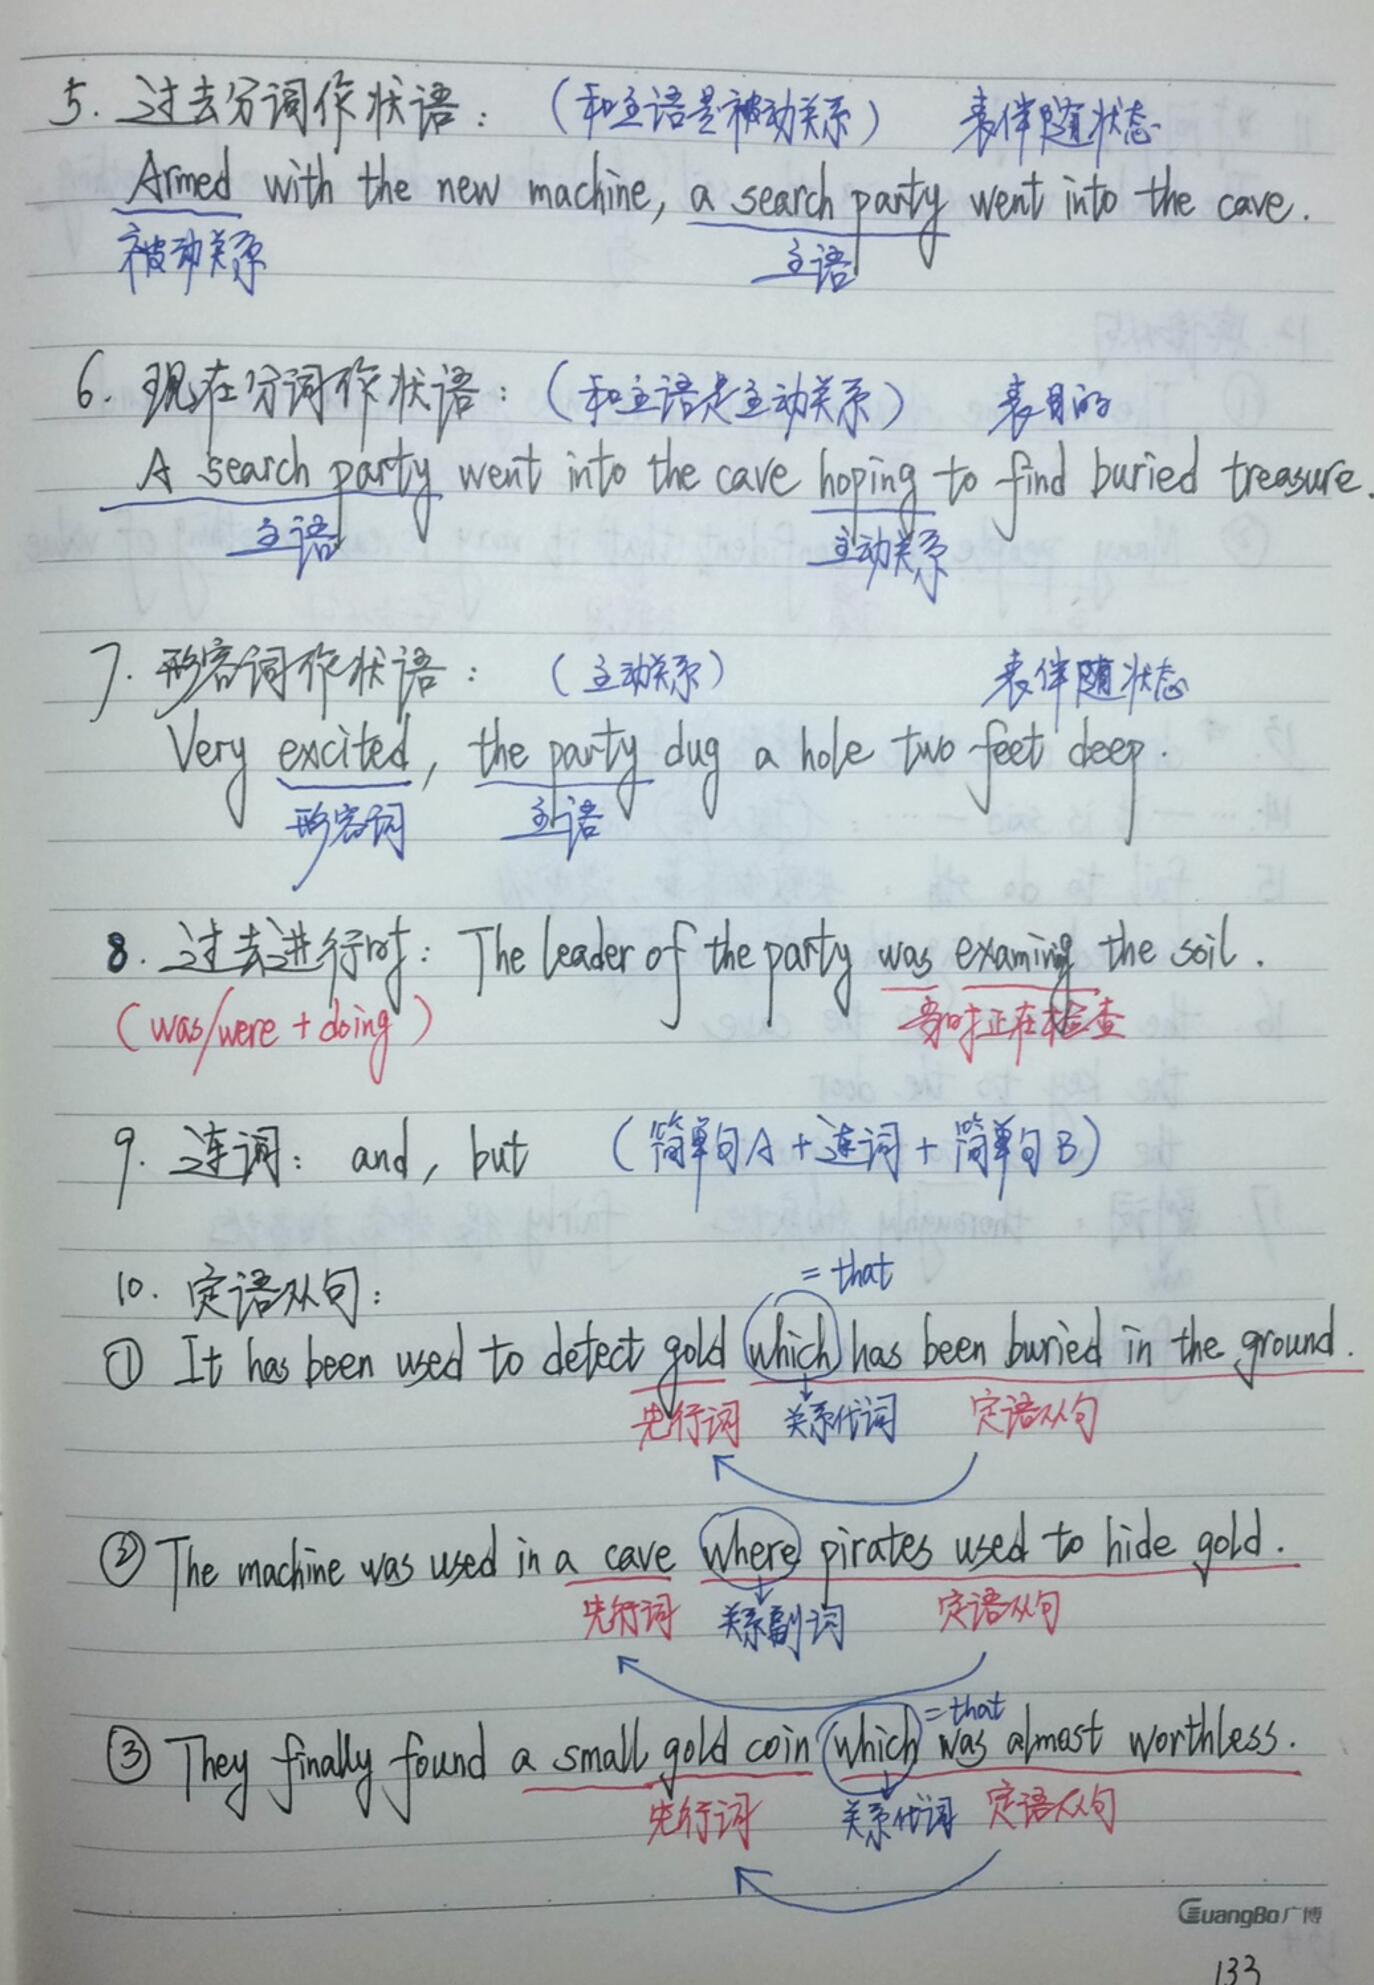 5. 过去分词作状语： （和主语是被动关系） 表伴随状态
Armed with the new machine, a search party went into the cave.
被动关系 主语
6. 现在分词作状语：（和主语是主动关系） 表目的
A search party went into the cave hoping to find buried treasure.
主语 主动关系
7. 形容词作状语： （主动关系） 表伴随状态
Very excited, the party dug a hole two feet deep.
形容词 主语
8. 过去进行时：The leader of the party was examing the soil.
（was/were + doing） 当时正在检查
9. 连词：and, but （简单句A+连词+简单句B）
10. 定语从句：
= that
① It has been used to detect gold which has been buried in the ground.
先行词 关系代词 定语从句
② The machine was used in a cave where pirates used to hide gold.
先行词 关系副词 定语从句
=that
③ They finally found a small gold coin which was almost worthless.
先行词 关系代词 定语从句
GuangBo广博
133